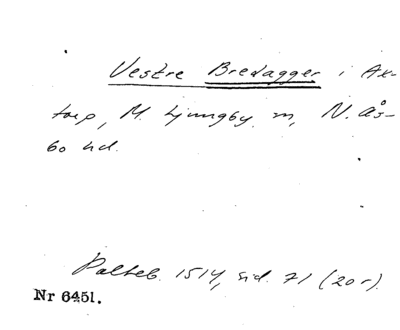 Vestre Bredagger i Ax-
torp, M. Ljungby sn, N. Ås-
bo hd.
Palteb. 1514, sid. 71 (20 r).
Nr 6451.